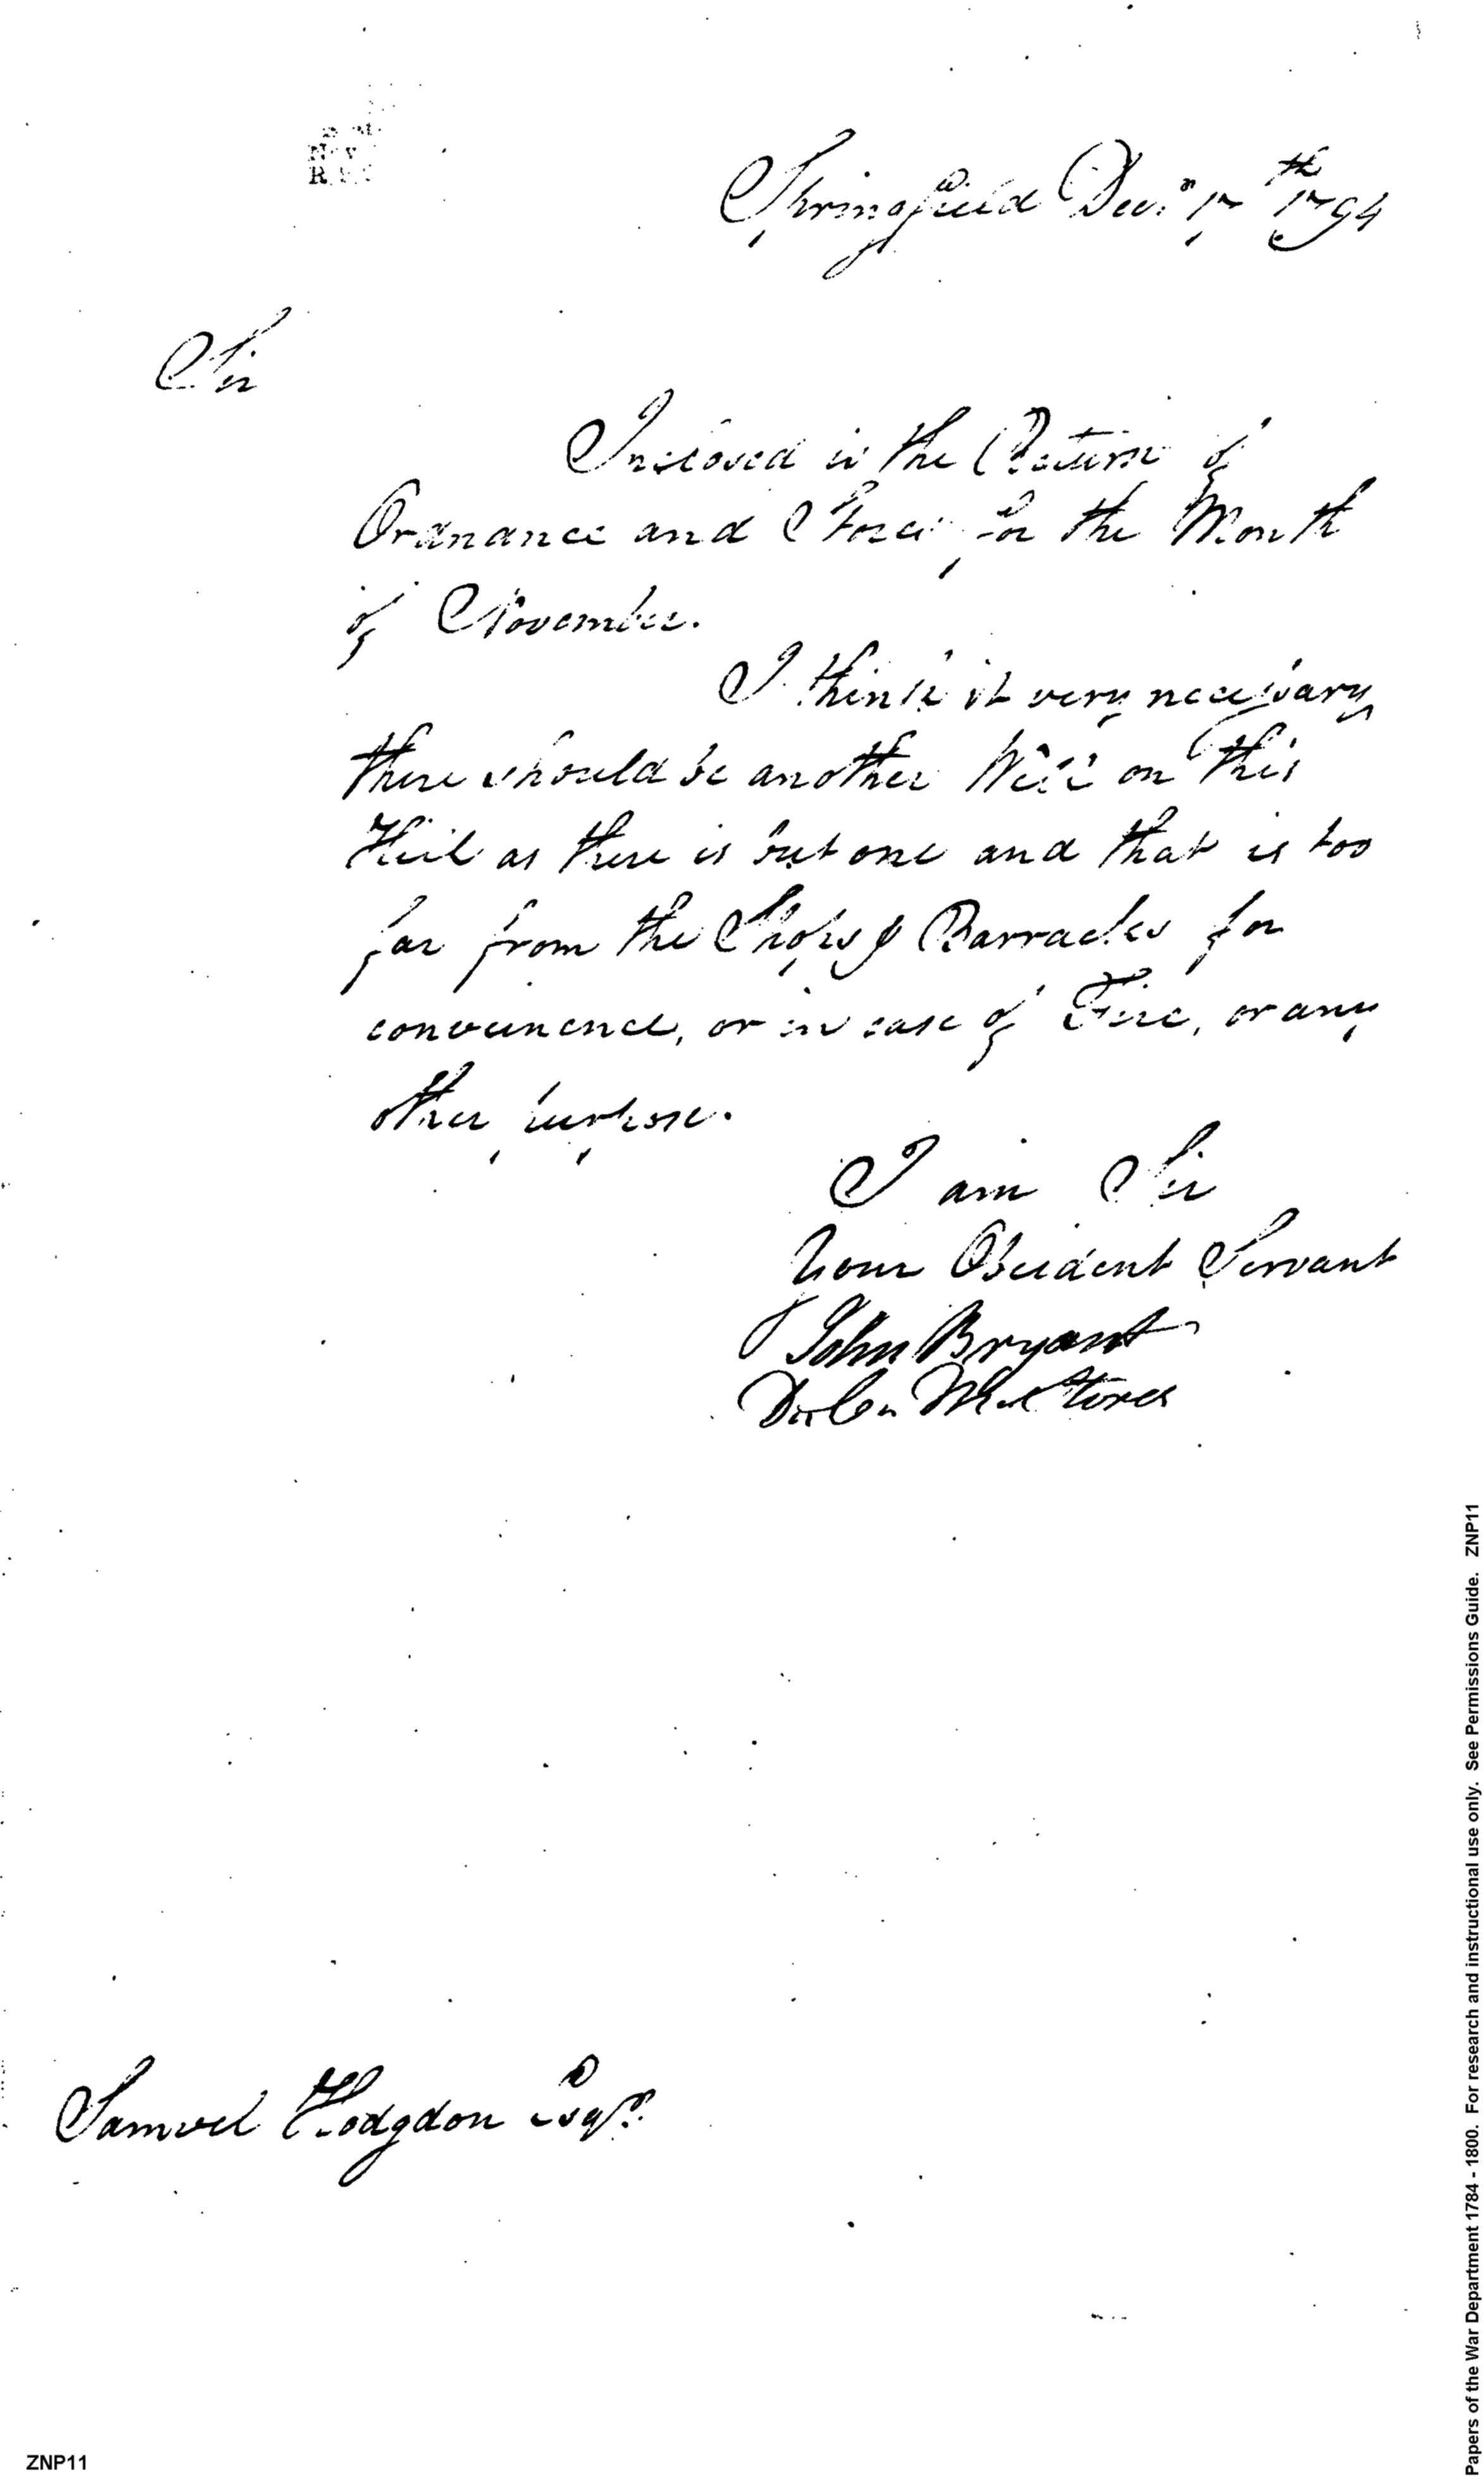 Springfield Decr 1st 1794
Sir
Inclosed is the Return of
Ordnance and Stores for the Month
of November.
I think it very necessary
there should be another Well on this
Hill as there is but one and that is too
far from the Shops & Barracks for
conveinence, or in case of Fire, or any
other purpose.
I am Sir
Your Obeident Servant
John Bryant
Stores
Samuel Hodgdon Esqr.
ZNP11
Papers of the War Department 1784 - 1800. For research and instructional use only. See Permissions Guide. ZNP11